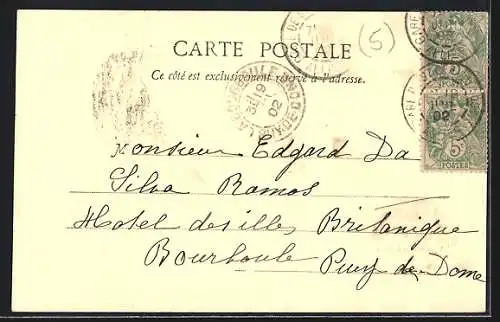 (5)
CARTE POSTALE
Ce côté est exclusivement réservé à l'adresse.
19
02
5c
POSTES
Monsieur Edgard Da
Silva Ramos
Hotel des illes Britanique
Bourboule Puy-de-Dome